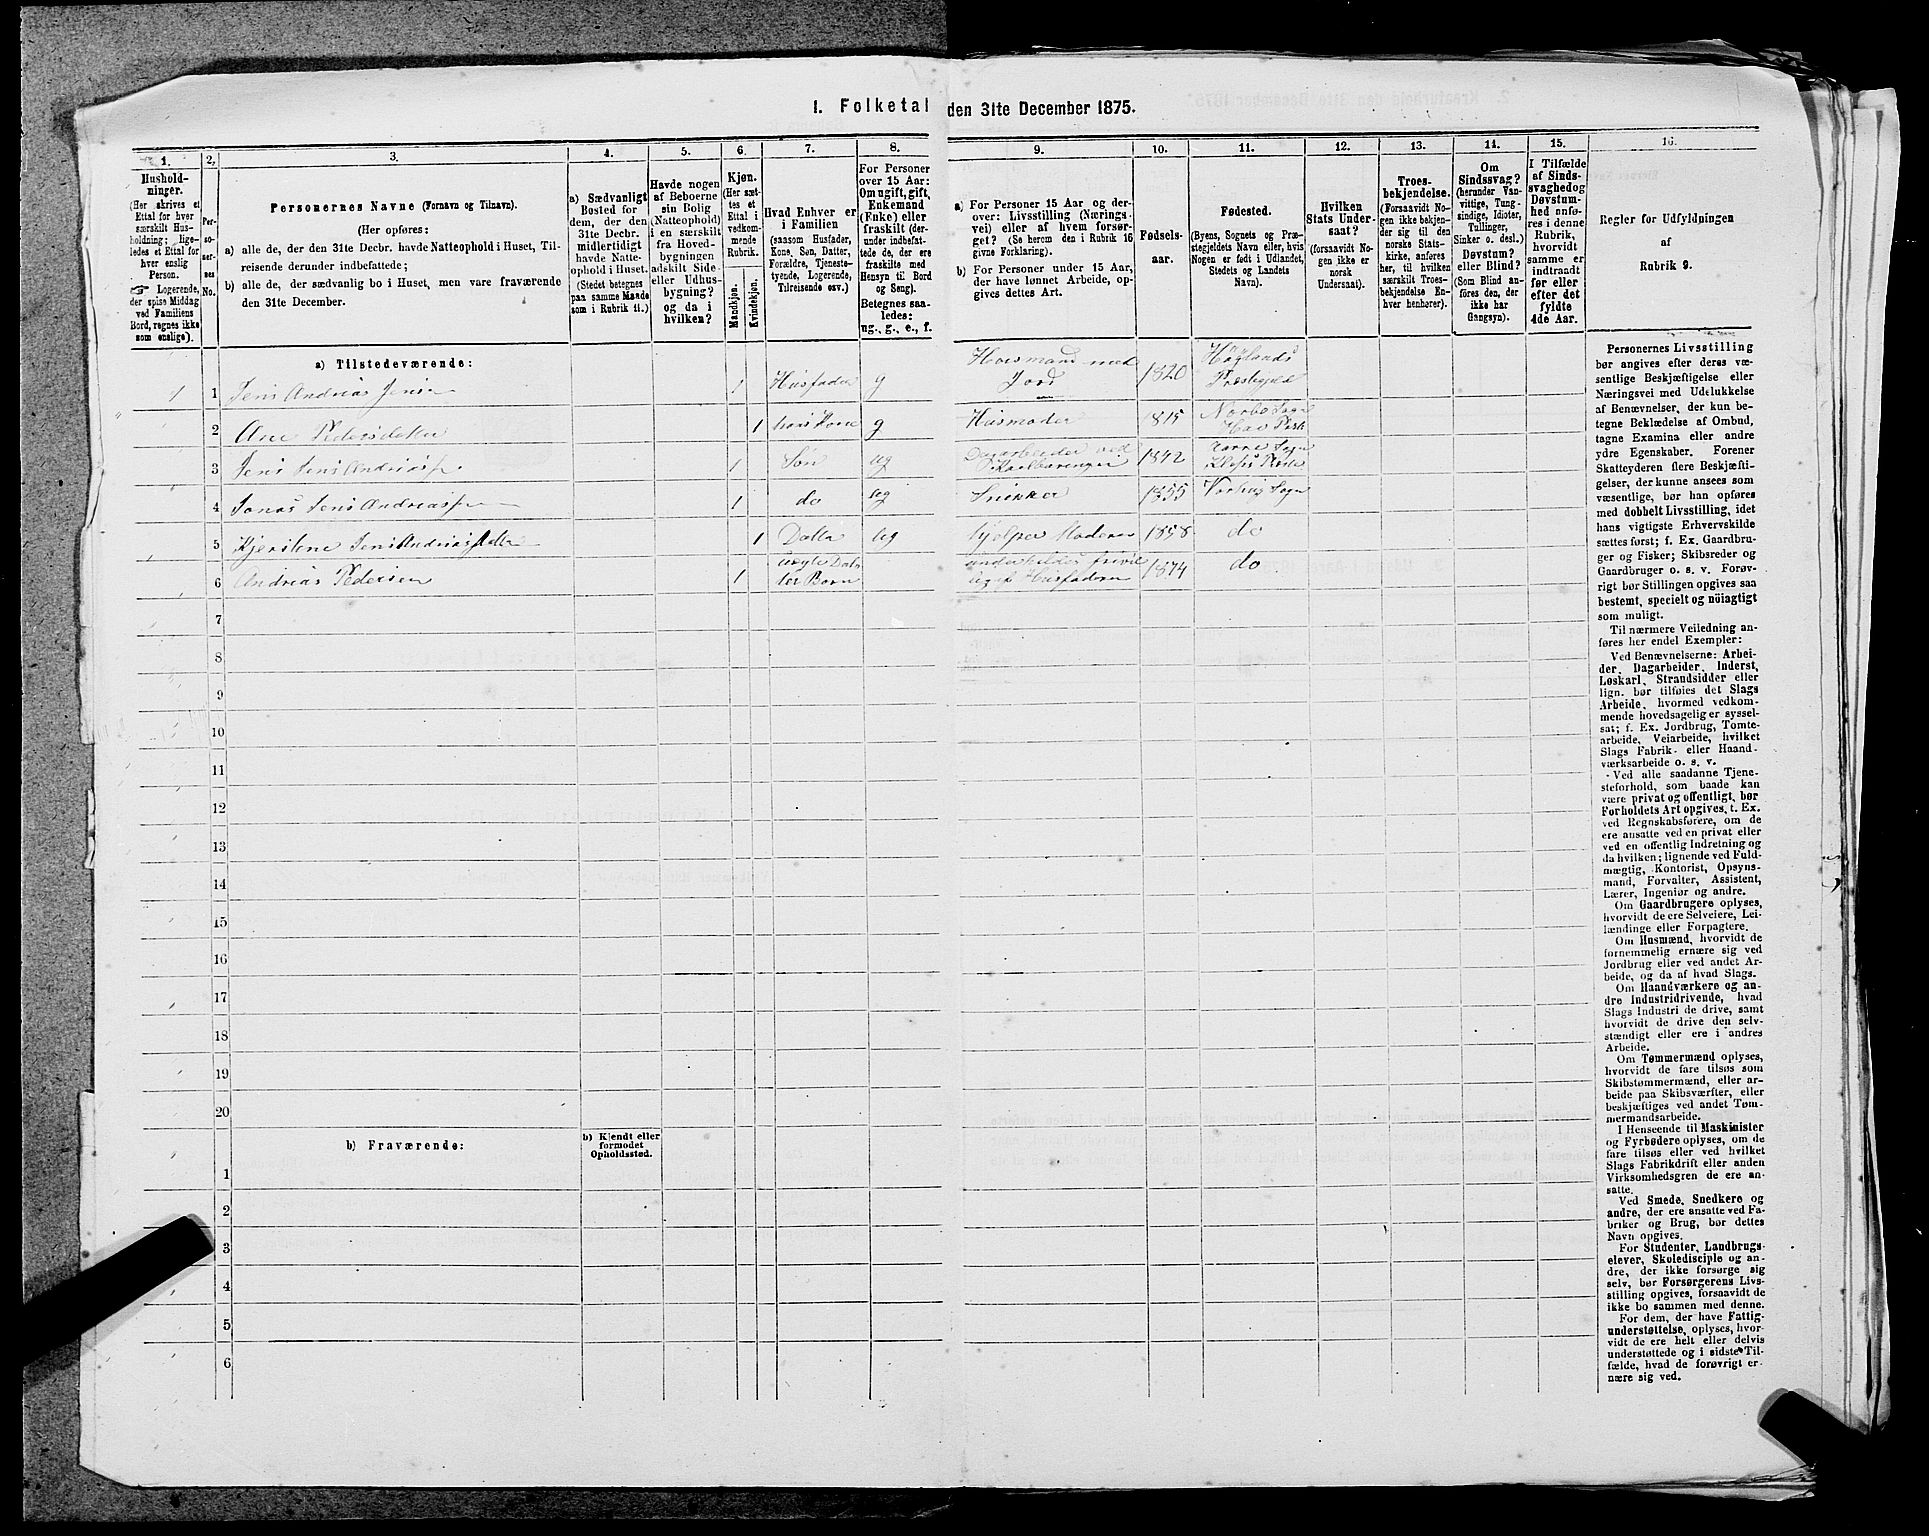 1. Folketal den 31te December 1875.
1. 2. 3. 4. 5. 6. 7. 8. 9. 10. 11. 12. 13. 14. 15. 16.
Hushold-
ninger.
(Her skrives et
Ettal for hver
særskilt Hus-
holdning; lige-
ledes et Ettal for
hver enslig
Person.
☞ Logerende,
der spise Middag
ved Familiens
Bord, regnes ikke
som enslige).
Per-
so-
ner-
nes
No.
Personernes Navne (Fornavn og Tilnavn).
(Her opføres:
a) alle de, der den 31te Decbr. havde Natteophold i Huset, Til-
reisende derunder indbefattede;
b) alle de, der sædvanlig bo i Huset, men vare fraværende
den 31te December.
a) Sædvanligt
Bosted for
dem, der den
31te Decbr.
midlertidigt
havde Natte-
ophold i Huset.
(Stedet betegnes
paa samme Maade
som i Rubrik 11.)
Havde nogen
af Beboerne
sin Bolig
(Natteophold)
i en særskilt
fra Hoved-
bygningen
adskilt Side-
eller Udhus-
bygning?
og da i
hvilken?
Kjøn.
(Her sæt-
tes et
Ettal i
vedkom-
mende
Rubrik.
Mandkjøn.
Kvindekjøn.
Hvad Enhver er
i Familien
(saasom Husfader,
Kone, Søn, Datter,
Forældre, Tjeneste-
tyende, Logerende,
Tilreisende osv.)
For Personer
over 15 Aar:
Om ugift, gift,
Enkemand
(Enke) eller
fraskilt (der-
under indbefat-
tede de, der ere
fraskilte med
Hensyn til Bord
og Seng).
Betegnes saa-
ledes:
ug., g., e., f.
a) For Personer 15 Aar og der-
over: Livsstilling (Nærings-
vei) eller af hvem forsør-
get? (Se herom den i Rubrik 16
givne Forklaring).
b) For Personer under 15 Aar,
der have lønnet Arbeide, op-
gives dettes Art.
Fødsels-
aar.
Fødested.
(Byens, Sognets og Præ-
stegjeldets Navn eller, hvis
Nogen er født i Udlandet,
Stedets og Landets
Navn).
Hvilken
Stats Under-
saat?
(forsaavidt No-
gen ikke er
norsk
Undersaat).
Troes-
bekjendelse.
(Forsaavidt No-
gen ikke bekjen-
der sig til den
norske Stats-
kirke, anføres
her, til hvilken
særskilt Troes-
bekjendelse En-
hver henhører).
Om
Sindssvag?
(herunder Van-
vittige, Tung-
sindige, Idioter,
Tullinger,
Sinker o. desl.)
Døvstum?
eller Blind?
(Som Blind an-
føres den, der
ikke har
Gangsyn).
I Tilfælde
af Sinds-
svaghed og
Døvstum-
hed anfø-
res i denne
Rubrik,
hvorvidt
samme er
indtraadt
før eller
efter det
fyldte
4de Aar.
Regler for Udfyldningen
af
Rubrik 9.
a) Tilstedeværende:
1 1 Jens Andreas Jensen 1 Husfader g Huusmand med Jord 1820 Høylands Præstegjeld
2 Ane Pedersdatter 1 hans Kone g Husmoder 1815 Sogn
3 Jens Jens Andreas 1 Søn ug Dagarbeider ved 1842 Sogn Kleps
4 Jonas Jens Andreas 1 do ug Snikker 1855 Sogn
5 Kjerstene Jens Andreas 1 Datter ug hjelper Moderen 1858 do
6 Andreas Pedersen 1 Børn underholdes Husfaderen 1874 do
7
8
9
10
11
12
13
14
15
16
17
18
19
20
b) Fraværende:
b) Kjendt eller
formodet
Opholdssted.
1
2
3
4
5
6
Personernes Livsstilling
bør angives efter deres væ-
sentlige Beskjæftigelse eller
Næringsvei med Udelukkelse
af Benævnelser, der kun be-
tegne Beklædelse af Ombud,
tagne Examina eller andre
ydre Egenskaber. Forener
Skatteyderen flere Beskjæfti-
gelser, der kunne ansees som
væsentlige, bør han opføres
med dobbelt Livsstilling, idet
hans vigtigste Erhvervskilde
sættes først; f. Ex. Gaardbru-
ger og Fisker; Skibsreder og
Gaardbruger o. s. v. Forøv-
rigt bør Stillingen opgives saa
bestemt, specielt og nøiagtigt
som muligt.
Til nærmere Veiledning an-
føres her endel Exempler:
Ved Benævnelserne: Arbei-
der, Dagarbeider, Inderst,
Løskarl, Strandsidder eller
lign. bør tilføies det Slags
Arbeide, hvormed vedkom-
mende hovedsagelig er syssel-
sat; f. Ex. Jordbrug, Tomte-
arbeide, Veiarbeide, hvilket
Slags Fabrik- eller Haand-
værksarbeide o. s. v.
Ved alle saadanne Tjene-
steforhold, som baade kan
være privat og offentligt, bør
Forholdets Art opgives, t. Ex.
ved Regnskabsførere, om de
ere ansatte ved en privat eller
ved en offentlig Indretning og
da hvilken; lignende ved Fuld-
mægtig, Kontorist, Opsyns-
mand, Forvalter, Assistent,
Lærer, Ingeniør og andre.
Om Gaardbrugere oplyses,
hvorvidt de ere Selveiere, Lei-
lændinge eller Forpagtere.
Om Husmænd, hvorvidt de
fornemmelig ernære sig ved
Jordbrug eller ved andet Ar-
beide, og da af hvad Slags.
Om Haandværkere og an-
dre Industridrivende, hvad
Slags Industri de drive, samt
hvorvidt de drive den selv-
stændigt eller ere i andres
Arbeide.
Om Tømmermænd oplyses,
hvorvidt de fare tilsøs som
Skibstømmermænd, eller ar-
beide paa Skibsværfter, eller
beskjæftiges ved andet Tøm-
mermandsarbeide.
I Henseende til Maskinister
og Fyrbødere oplyses, om de
fare tilsøs eller ved hvilket
Slags Fabrikdrift eller anden
Virksomhedsgren de ere an-
satte.
Ved Smede, Snedkere og
andre, der ere ansatte ved Fa-
briker og Brug, bør dettes
Navn opgives.
For Studenter, Landbrugs-
elever, Skoledisciple og an-
dre, der ikke forsørge sig
selv, bør Forsørgerens Livs-
stilling opgives, forsaavidt de
ikke bo sammen med denne.
For dem, der have Fattig-
understøttelse, oplyses, hvor-
vidt de ere helt eller delvis
understøttede og i sidste Til-
fælde, hvad de forøvrigt er-
nære sig ved.